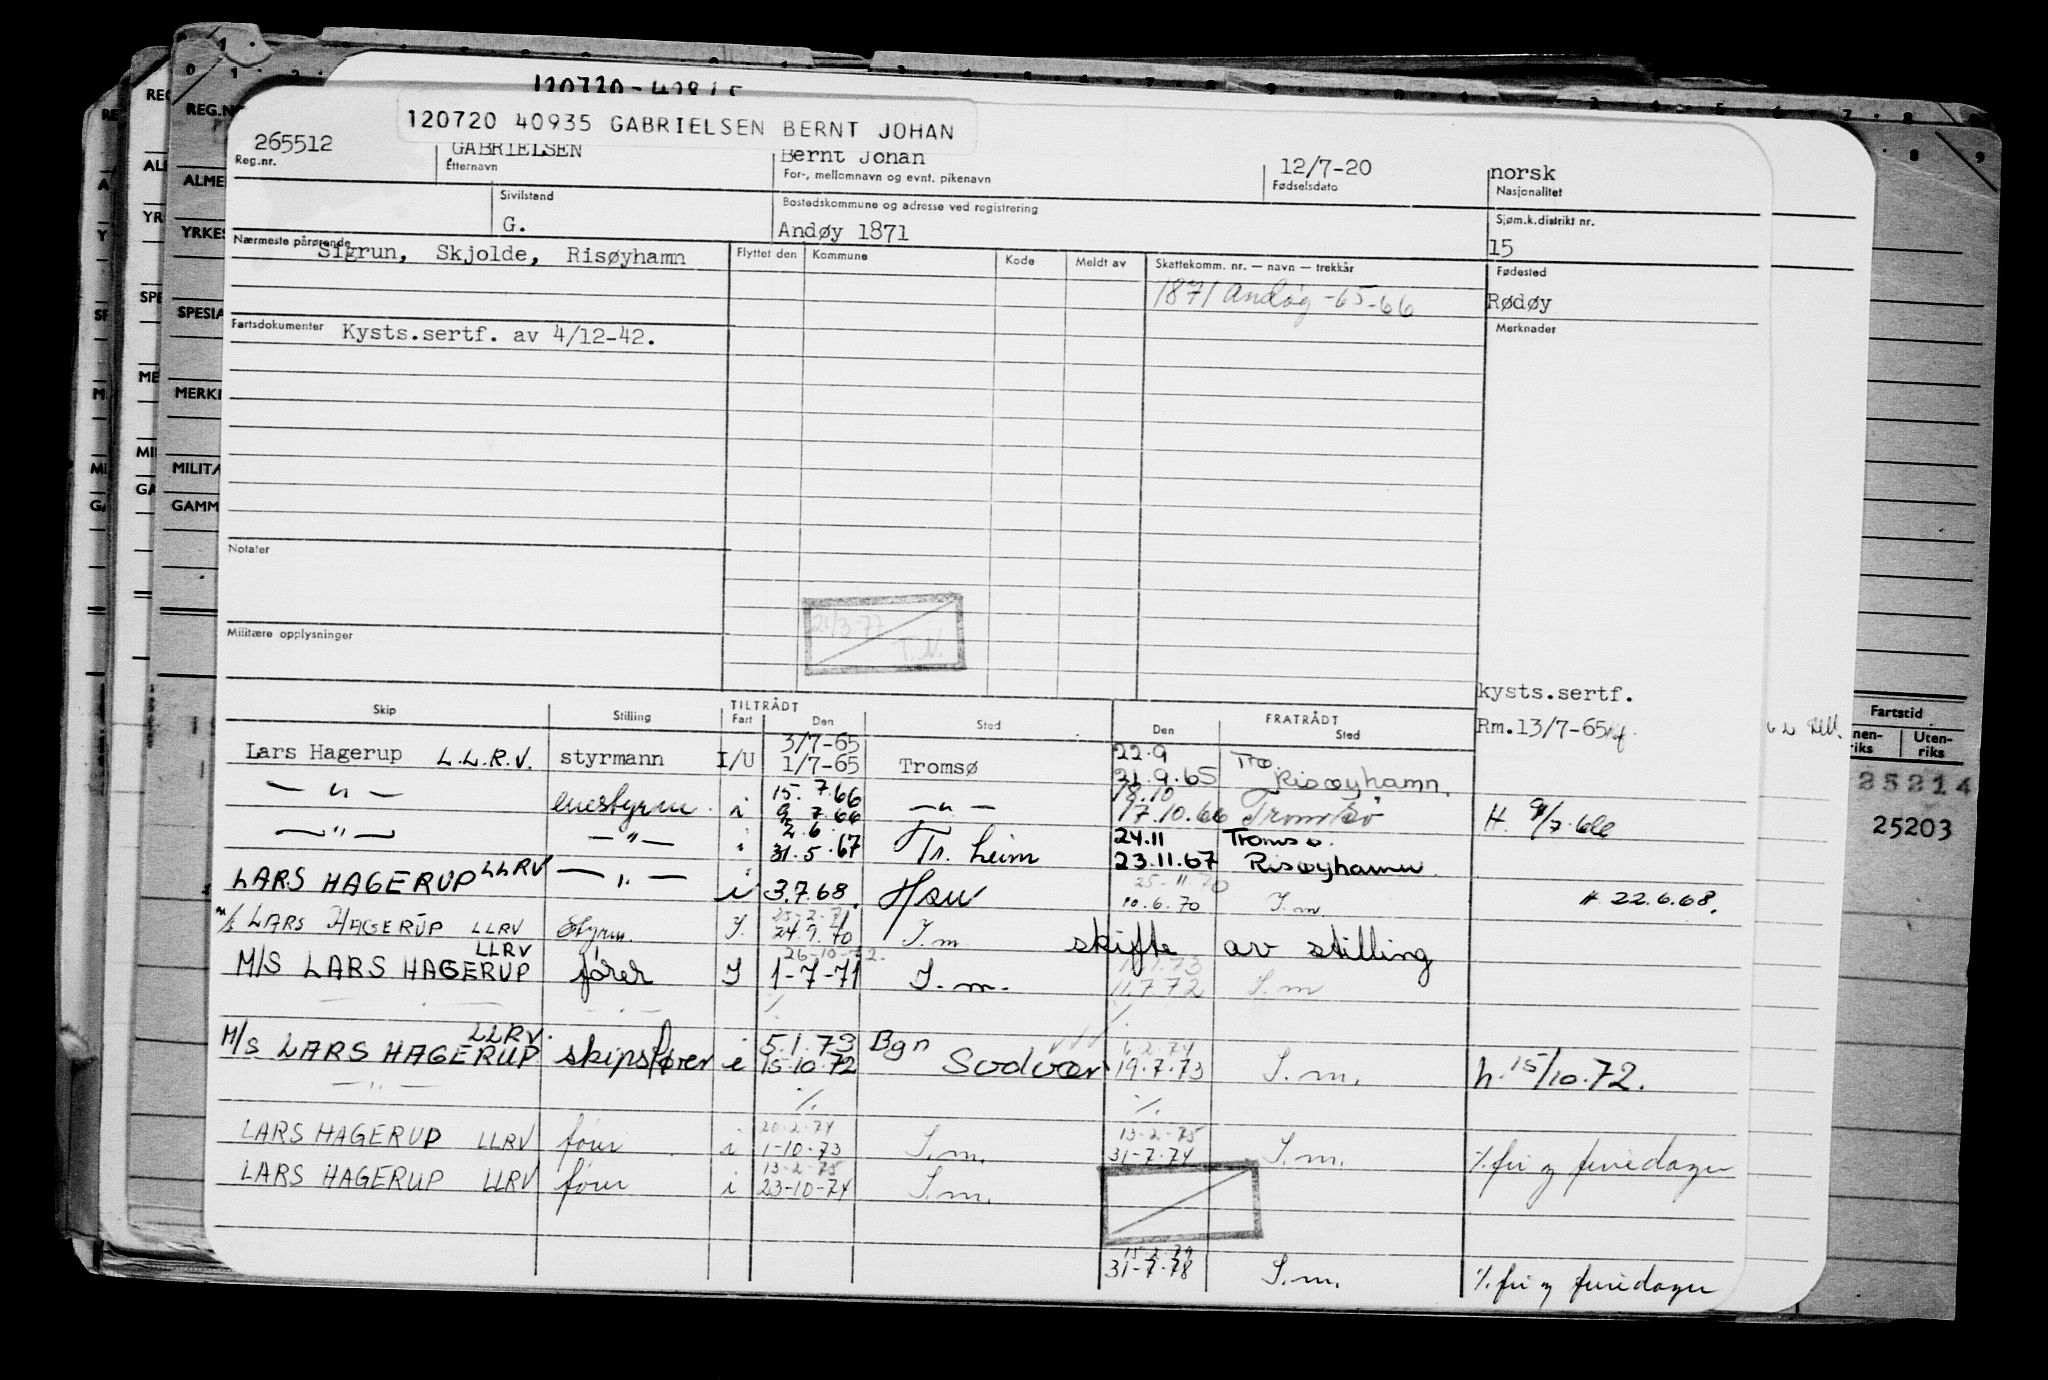 120720 40935 GABRIELSEN BERNT JOHAN
265512 GABRIELSEN Bernt Johan 12/7-20 norsk
Reg.nr. Etternavn For-, mellomnavn og evnt. pikenavn Fødselsdato Nasjonalitet
Sivilstand Bostedskommune og adresse ved registrering Sjøm.k.distrikt nr.
G. Andøy 1871 15
Nærmeste pårørende Sigrun, Skjolde, Risøyhamn
Flyttet den Kommune Kode Meldt av Skattekomm. nr. — navn — trekkår Fødested
1871 Andøy -65-66 Rødøy
Fartsdokumenter Kysts.sertf. av 4/12-42. Merknader
Notater
21/3-77
T.N.
Militære opplysninger
kysts.sertf.
Skip Stilling TILTRÅDT Fart Den Sted FRATRÅDT Den Sted Rm.13/7-65
3/7-65 22.9 Tro.
Lars Hagerup L.L.R.V. styrmann I/U 1/7-65 Tromsø 21.9.65 Risøyhamn.
15.7.66 18.10
— " — enestyrm. i 9.7.66 — " — 17.10.66 Tromsø H. 9/7.66
2.6. 24.11 Tromsø.
— " — — " — i 31.5.67 Tr.heim 23.11.67 Risøyhamn
25-11.70
LARS HAGERUP LLRV — " — i 3.7.68. Hsv 10.6.70 S.m. H 22.6.68.
25-2.71
M/S LARS HAGERUP LLRV Styrm. I. 24.9.70 S.m. skifte av stilling
26-10-72.
M/S LARS HAGERUP LLRV fører I 1-7-71 S.m. 11.7.72 S.m
5.1.73 Bgn 6.2.74
M/S LARS HAGERUP LLRV. skipsfører i 15.10.72 Svolvær 19.7.73 S.m. h. 15/10.72.
— " — ./. ./.
20.2.74 13-2-75
LARS HAGERUP LLRV fører i 1-10-73 S.m. 31-7.74 S.m. ./. fri og feriedager
13-2-75
LARS HAGERUP LLRV fører i 23-10-74 S.m.
15.2.79
31-7-78 S.m. ./. fri og feriedager
Fartstid
Uten-riks
25214
25203